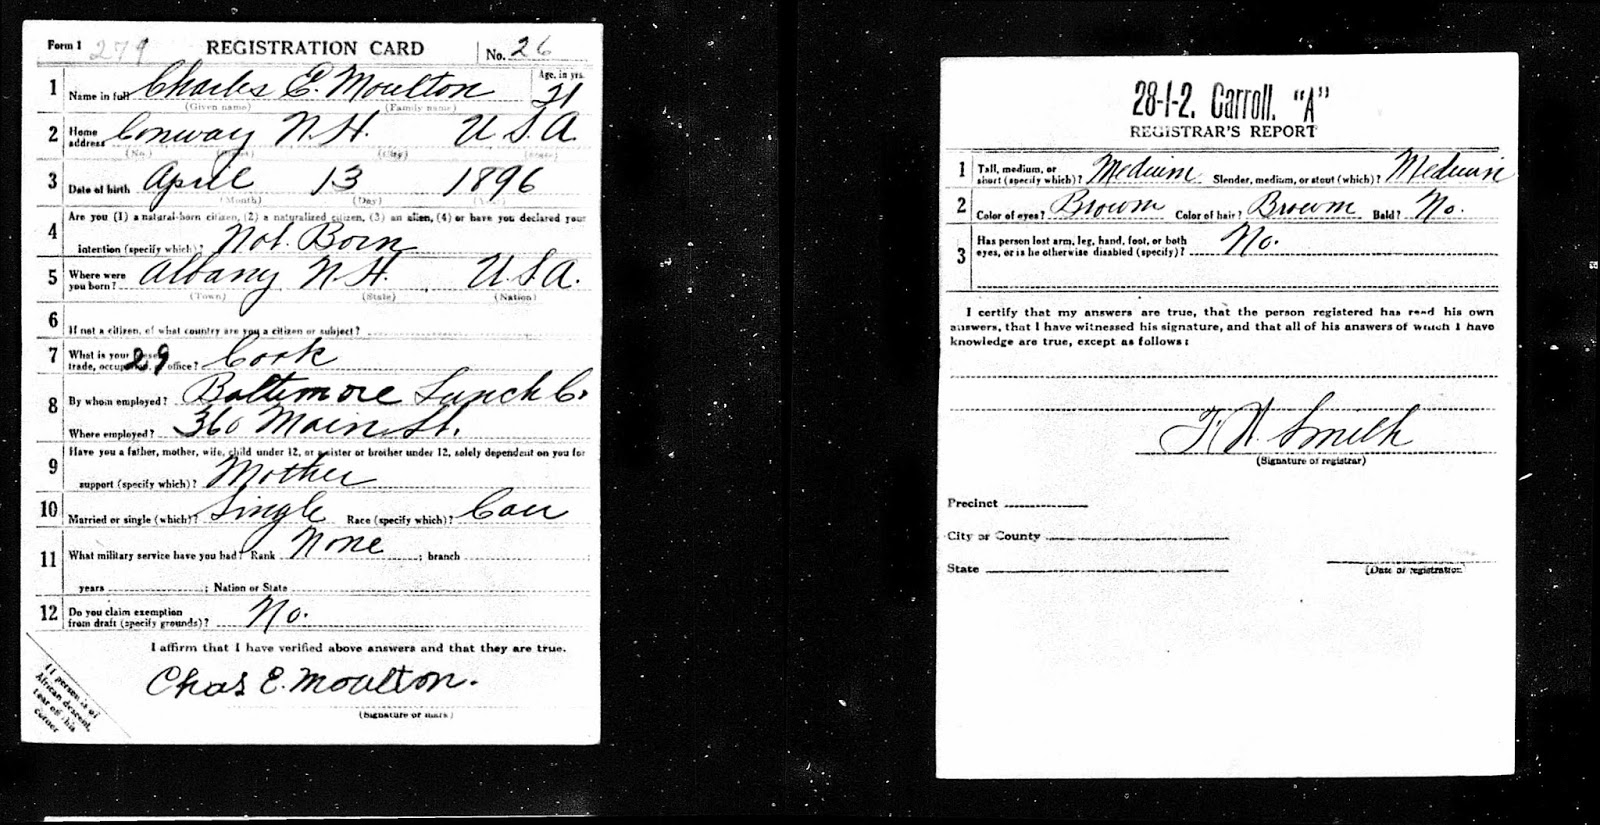 Form 1 279 REGISTRATION CARD No. 26
1 Name in full Charles E. Moulton Age, in yrs. 21
(Given name) (Family name)
2 Home address Conway N.H. U.S.A.
(No.) (Street) (City) (State)
3 Date of birth April 13 1896
(Month) (Day) (Year)
Are you (1) a natural-born citizen, (2) a naturalized citizen, (3) an alien, (4) or have you declared your
4 intention (specify which)? Nat. Born
5 Where were you born? Albany N.H. U.S.A.
(Town) (State) (Nation)
6 If not a citizen, of what country are you a citizen or subject?
7 What is your present trade, occupation, or office? 29 Cook
8 By whom employed? Baltimore Lunch Co.
Where employed? 360 Main St.
9 Have you a father, mother, wife, child under 12, or a sister or brother under 12, solely dependent on you for
support (specify which)? Mother
10 Married or single (which)? Single Race (specify which)? Cau
11 What military service have you had? Rank None ; branch
years ; Nation or State
12 Do you claim exemption from draft (specify grounds)? No.
I affirm that I have verified above answers and that they are true.
Chas E. Moulton.
(Signature or mark)
If person is of
African descent,
tear off this
corner
28-1-2. Carroll. "A"
REGISTRAR'S REPORT
1 Tall, medium, or short (specify which)? Medium Slender, medium, or stout (which)? Medium
2 Color of eyes? Brown Color of hair? Brown Bald? No.
3 Has person lost arm, leg, hand, foot, or both eyes, or is he otherwise disabled (specify)? No.
I certify that my answers are true, that the person registered has read his own
answers, that I have witnessed his signature, and that all of his answers of which I have
knowledge are true, except as follows:
F. W. Smith
(Signature of registrar)
Precinct
City or County
State
(Date of registration)